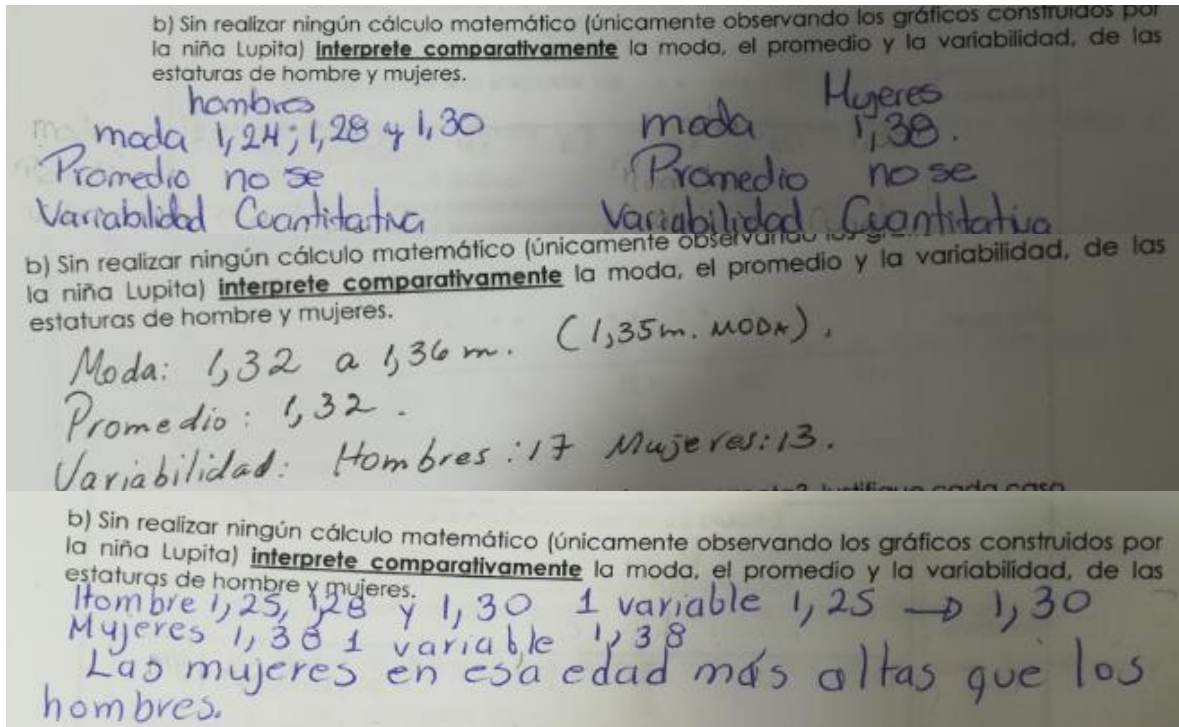 b) Sin realizar ningún cálculo matemático (únicamente observando los gráficos construidos por
la niña Lupita) interprete comparativamente la moda, el promedio y la variabilidad, de las
estaturas de hombre y mujeres.
hombres Mujeres
moda 1,24; 1,28 y 1,30 moda 1,38.
Promedio no se Promedio no se
Variabilidad Cuantitativa Variabilidad Cuantitativa
b) Sin realizar ningún cálculo matemático (únicamente observando los
la niña Lupita) interprete comparativamente la moda, el promedio y la variabilidad, de las
estaturas de hombre y mujeres.
Moda: 1,32 a 1,36 m. (1,35m. MODA).
Promedio: 1,32.
Variabilidad: Hombres: 17 Mujeres: 13.
b) Sin realizar ningún cálculo matemático (únicamente observando los gráficos construidos por
la niña Lupita) interprete comparativamente la moda, el promedio y la variabilidad, de las
estaturas de hombre y mujeres.
Hombre 1,25, 1,28 y 1,30 1 variable 1,25 → 1,30
Mujeres 1,38 1 variable 1,38
Las mujeres en esa edad más altas que los
hombres.